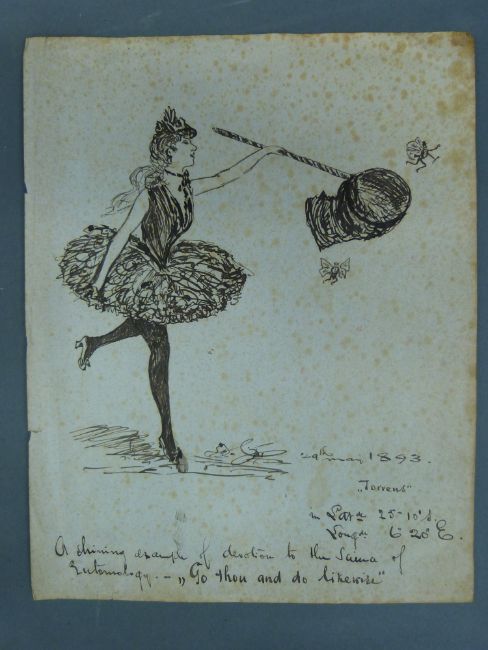 29th May 1893.
„Torrens"
in Lat. 25°10' S.
Long. 6°20' E.
A shining example of devotion to the Sciena of
Entomology - - „Go thou and do likewise"